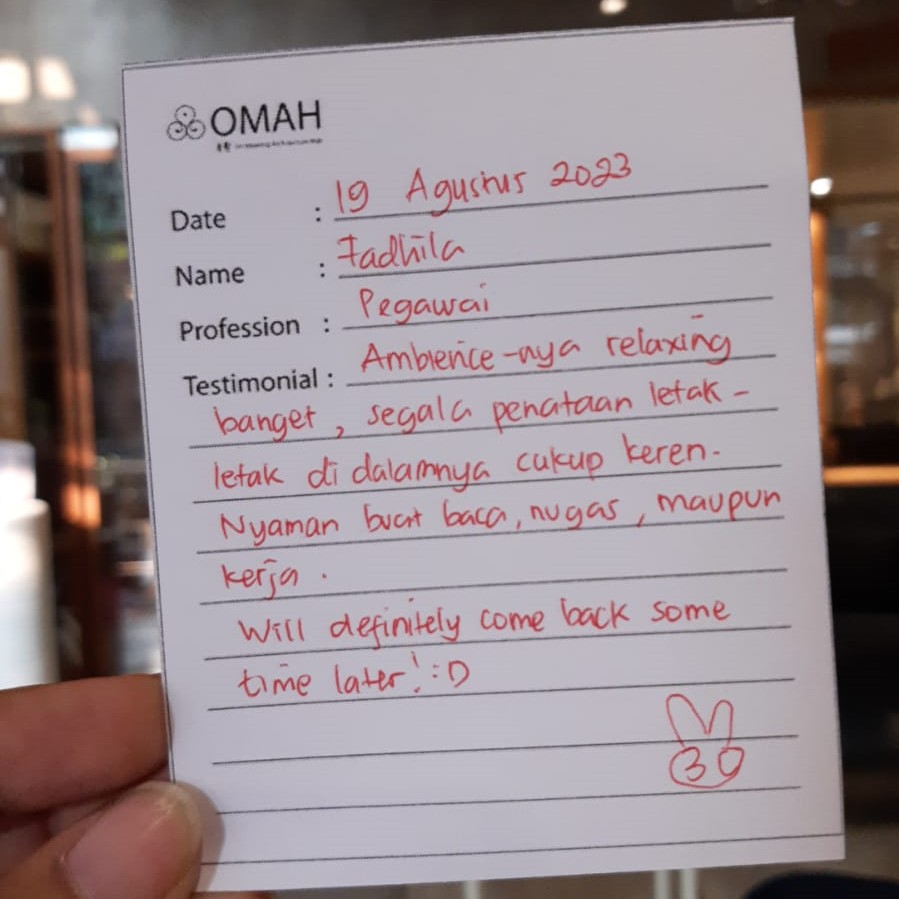 OMAH
Date : 19 Agustus 2023
Name : Fadhila
Profession : Pegawai
Testimonial : Ambience-nya relaxing
banget, segala penataan letak-
letak di dalamnya cukup keren.
Nyaman buat baca, nugas, maupun
kerja.
Will definitely come back some
time later! :D